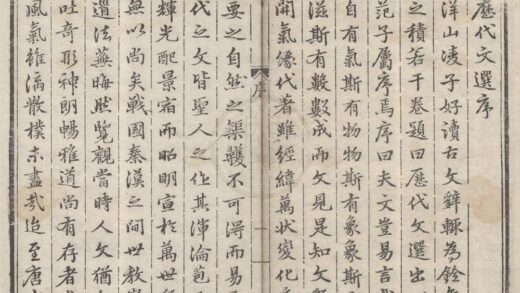 歷代文選序
洋山凌子好讀古文辭輒為銓
之積若干卷題曰歷代文選出
范子屬序焉序曰夫文豈易言
自有氣斯有物物斯有象象斯
滋斯有數數成而文見是知文
開氣像代著雖經緯萬狀變化
序
一
要之自然之榘矱不可得而易
代之文皆聖人之作其渾淪
輝光配景宿而昭明宣於萬世
無以尚矣戰國秦漢之間世教
遺法蕪晦然覽觀當時人文猶
吐奇形神朗暢雅道尚有存者
風氣雖漓散樸未盡哉迨至唐